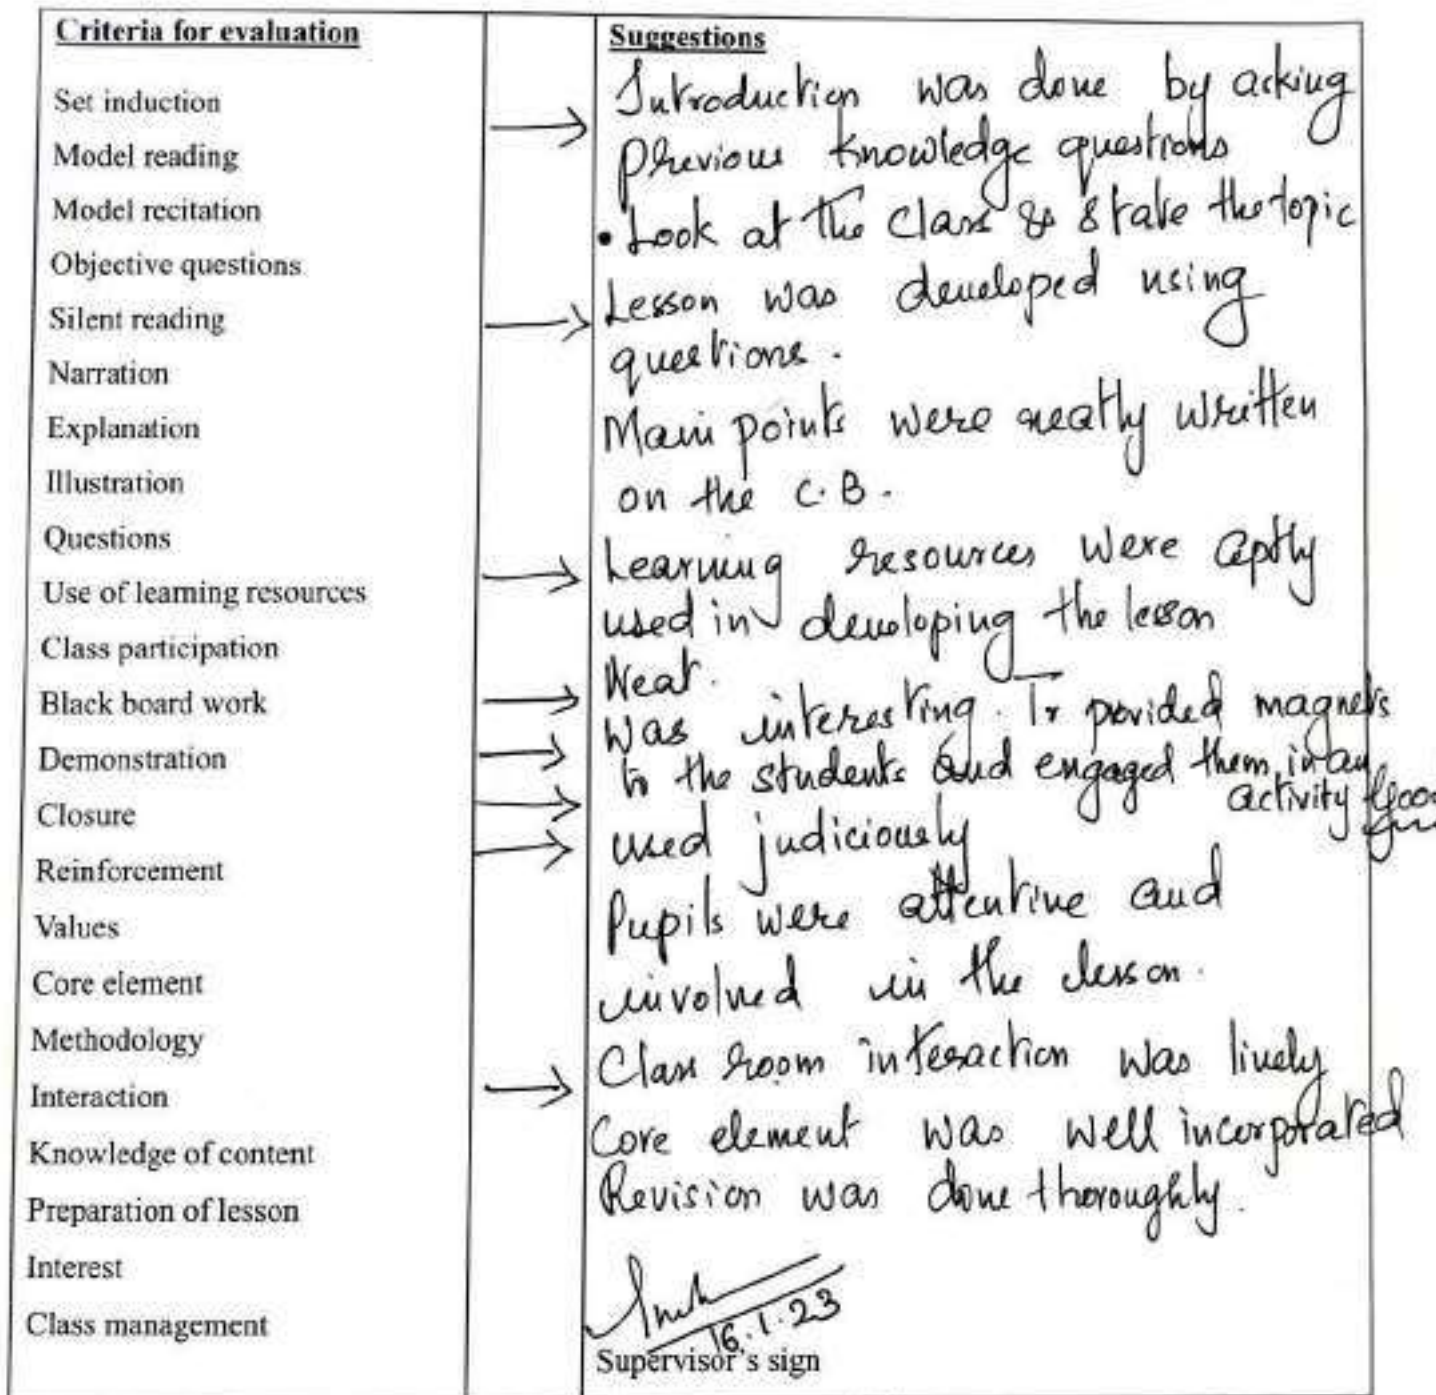 Criteria for evaluation
Set induction
Model reading
Model recitation
Objective questions
Silent reading
Narration
Explanation
Illustration
Questions
Use of learning resources
Class participation
Black board work
Demonstration
Closure
Reinforcement
Values
Core element
Methodology
Interaction
Knowledge of content
Preparation of lesson
Interest
Class management
Suggestions
Introduction was done by acking
previous knowledge questions
• Look at the class & state the topic
Lesson was developed using
questions.
Main points were neatly written
on the C.B.
Learning resources were aptly
used in developing the lesson
Neat.
Was interesting. Tr provided magnets
to the students and engaged them in an
activity
used judiciously
Pupils were attentive and
involved in the lesson.
Class room interaction was lively
Core element was well incorporated
Revision was done thoroughly.
16.1.23
Supervisor's sign